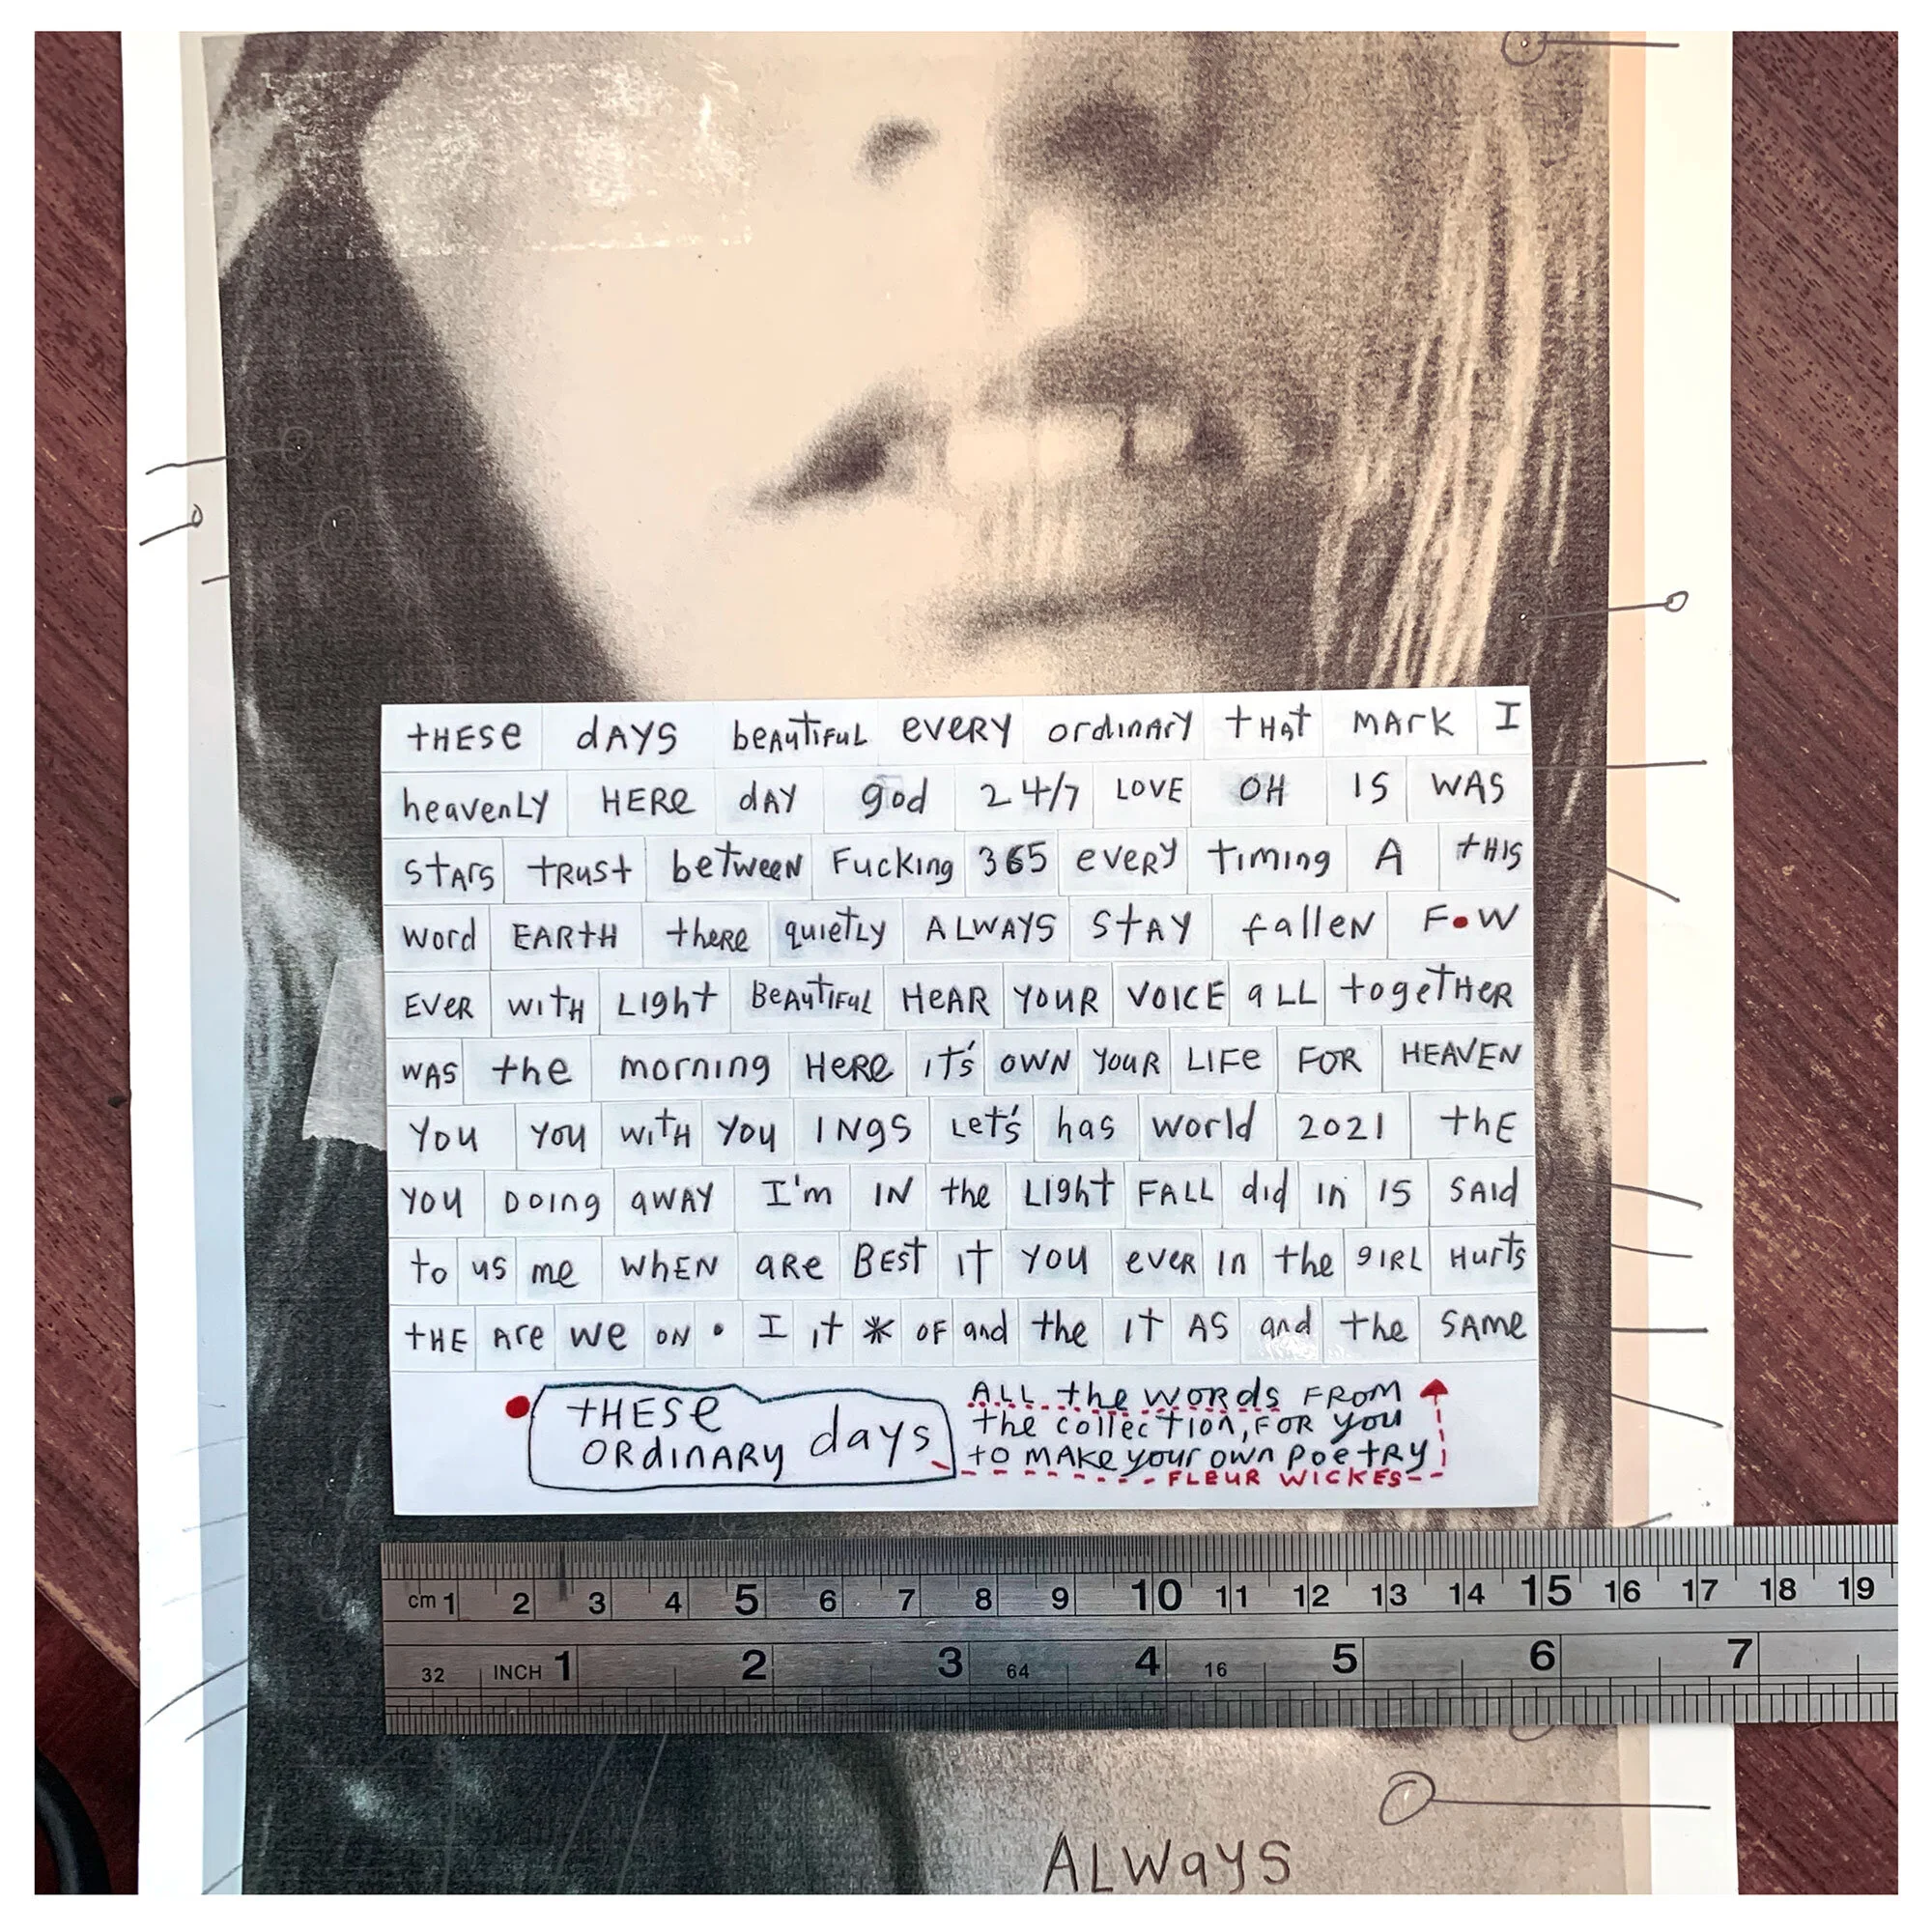 tHESe dAYS beAutiFuL eveRY ordinARY tHAt MArK I
heavenLY HERe dAY god 24/7 LOVE OH IS WAS
stArs tRUSt between Fucking 365 eveRY timing A tHIS
word EARtH theRe quietLy ALWAYS StAY fallen F•W
EVER witH LIght BeAutiFuL HeAR YOUR VOICE aLL togetHeR
WAS the morning HeRe it's OWN YouR LIFe FOR HEAVEN
You You witH You INgS Let's has world 2021 thE
You DOing aWAY I'm IN the LIght FALL did in IS SAId
to us me WhEN aRe BESt it You eveR in the gIRL Hurts
tHE Are we ON • I it * OF and the it AS and the SAMe
tHESe
ORdinARY days
ALL the WORds FROM
the collection, FOR you
to MAKe your own PoetRY
FLEUR WICKES
cm 1 2 3 4 5 6 7 8 9 10 11 12 13 14 15 16 17 18 19
32 INCH 1 2 3 64 4 16 5 6 7
ALWayS